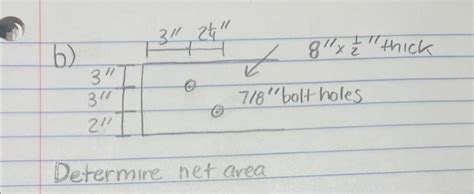 3" 2 1/4"
b) 8" x 1/2" thick
3"
3" 7/8" bolt holes
2"
Determine net area